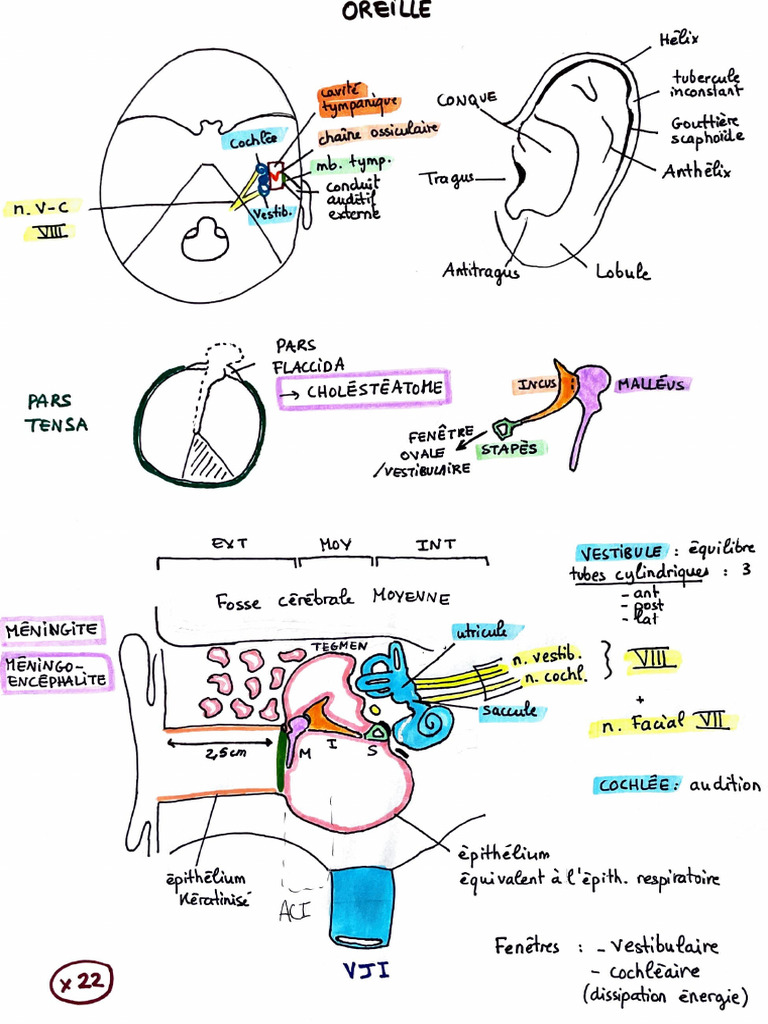 OREILLE
cavité
tympanique
Cochlée
chaîne ossiculaire
mb. tymp.
conduit
auditif
externe
n. V-C
VIII
Vestib.
Hélix
tubercule
inconstant
CONQUE
Gouttière
scaphoïde
Anthélix
Tragus
Antitragus
Lobule
PARS
FLACCIDA
→ CHOLÉSTÉATOME
PARS
TENSA
INCUS
MALLÉUS
FENÊTRE
OVALE
/VESTIBULAIRE
STAPÈS
EXT
MOY
INT
VESTIBULE : équilibre
tubes cylindriques : 3
- ant
- post
- lat
Fosse cérébrale MOYENNE
MÉNINGITE
MÉNINGO-
ENCÉPHALITE
TEGMEN
utricule
n. vestib.
n. cochl.
VIII
saccule
+
n. Facial VII
2,5cm
M
I
S
COCHLÉE : audition
épithélium
Kératinisé
épithélium
équivalent à l'épith. respiratoire
ACI
VJI
Fenêtres : - vestibulaire
- cochléaire
(dissipation énergie)
x 22